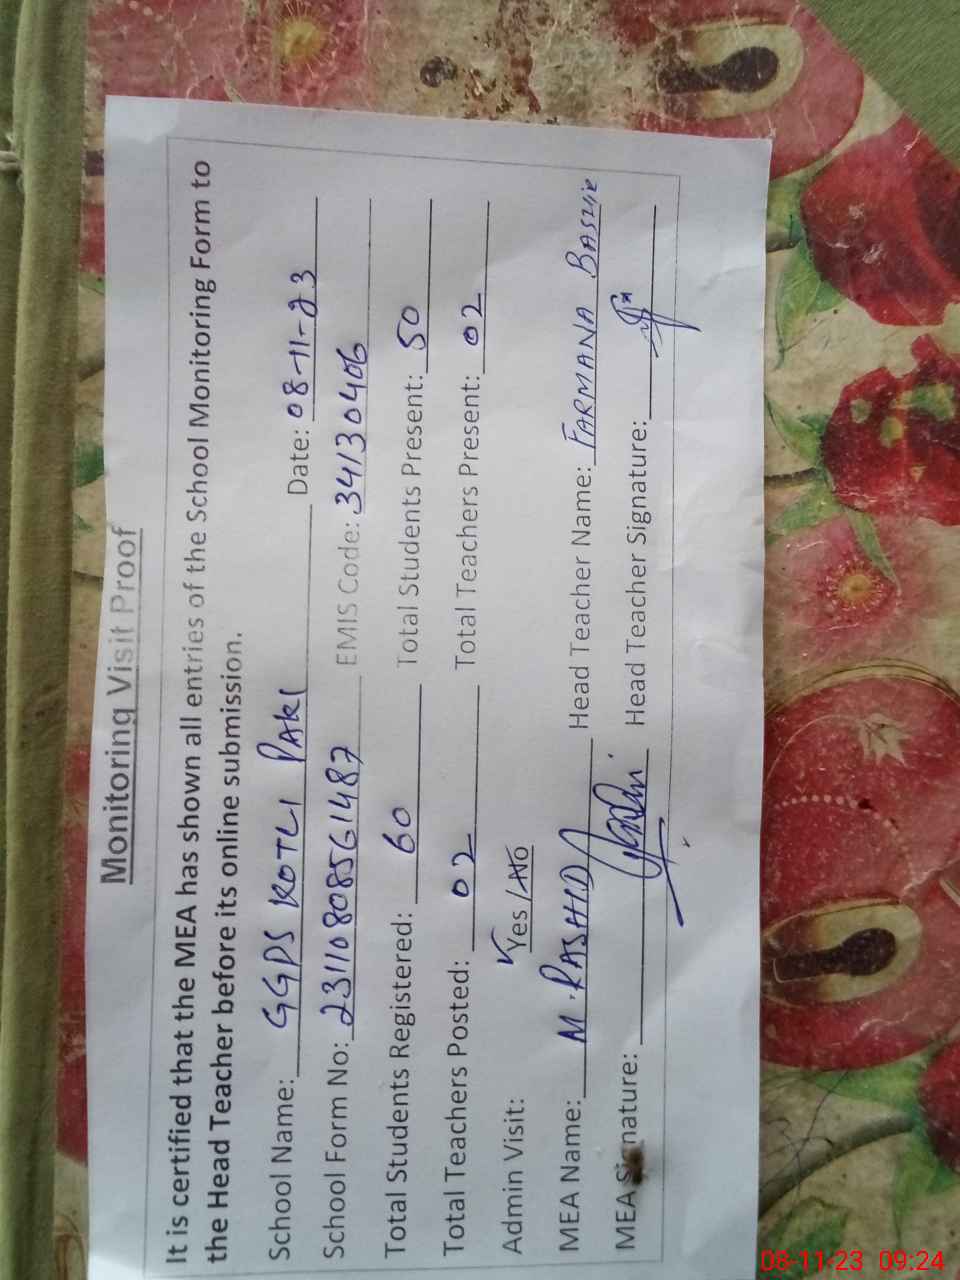 Monitoring Visit Proof
It is certified that the MEA has shown all entries of the School Monitoring Form to
the Head Teacher before its online submission.
School Name: GGPS KOTLI PAKI Date: 08-11-23
School Form No: 23110808561487 EMIS Code: 34130406
Total Students Registered: 60 Total Students Present: 50
Total Teachers Posted: 02 Total Teachers Present: 02
Admin Visit: Yes/No
MEA Name: M. RASHID Head Teacher Name: FARMANA BASHIR
MEA Signature: Head Teacher Signature:
08-11-23 09:24